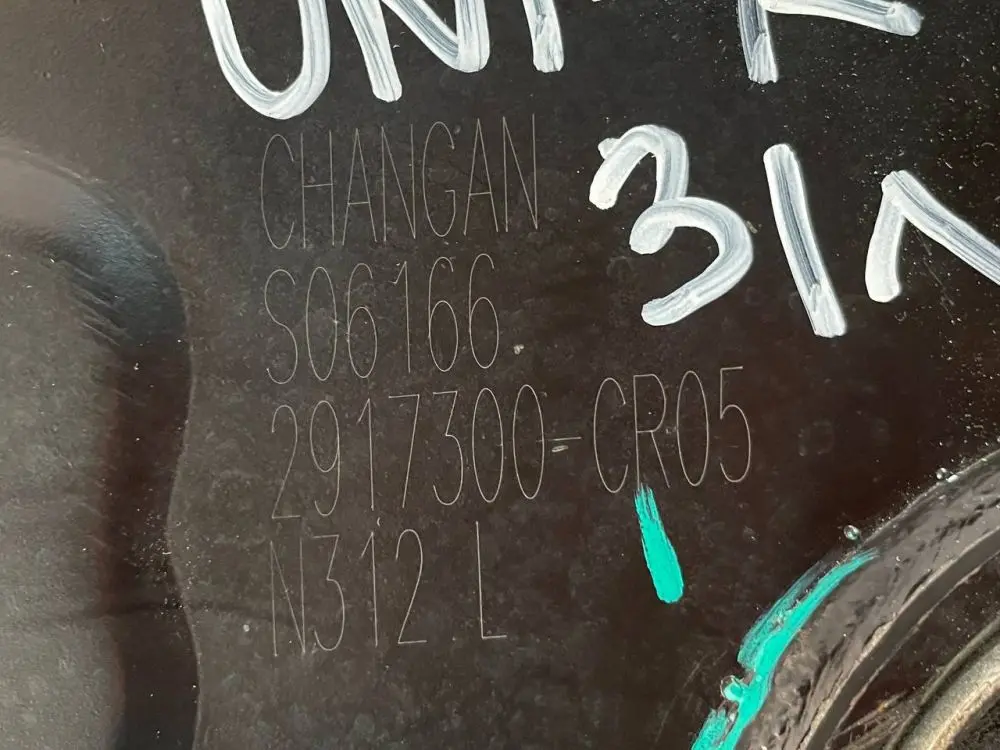 UNI-K
CHANGAN
S06166
2917300-CR05
N312 L